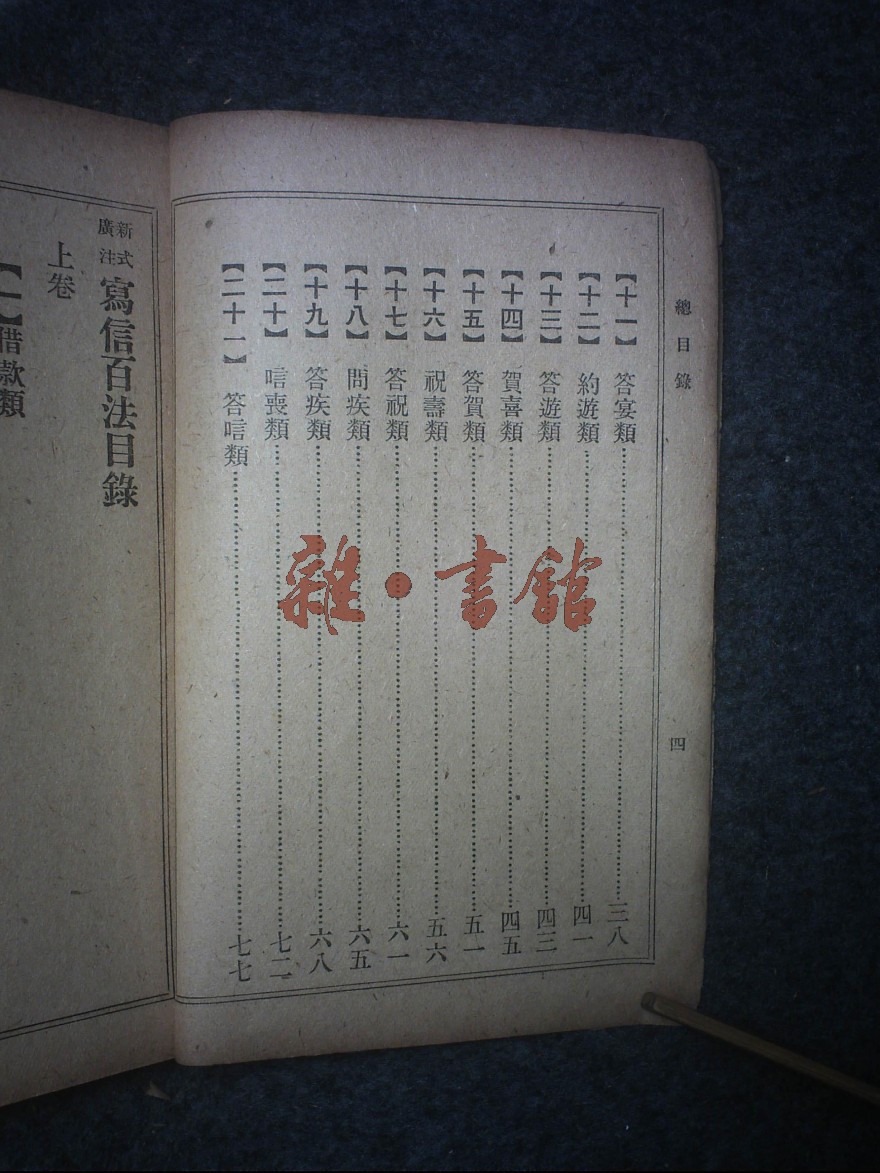 總目錄
四
【十一】 答宴類……三八
【十二】 約遊類……四一
【十三】 答遊類……四三
【十四】 賀喜類……四五
【十五】 答賀類……五一
【十六】 祝壽類……五六
【十七】 答祝類……六一
【十八】 問疾類……六五
【十九】 答疾類……六八
【二十】 唁喪類……七二
【二十一】 答唁類……七七
雜·書館
新式廣注 寫信百法目錄
上卷
【一】借款類